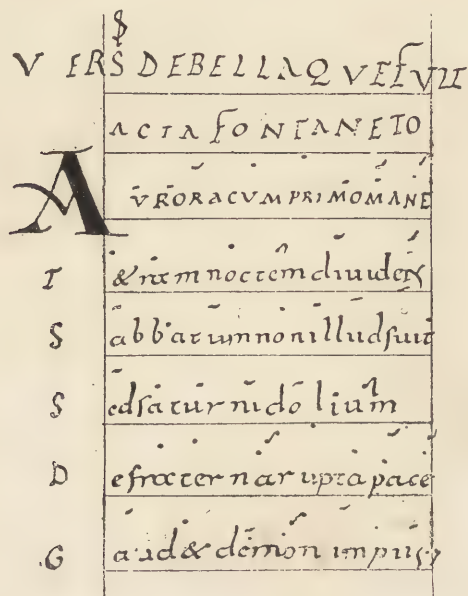 VERS DEBELLAQVEFVIT
ACTA FONTANETO
AVRORACVMPRIMOMANE
T&ram noctem diuidens
Sabbatum non illud fuit
Sed saturni dolium
Defraterna rupta pace
Gaud& demon impius